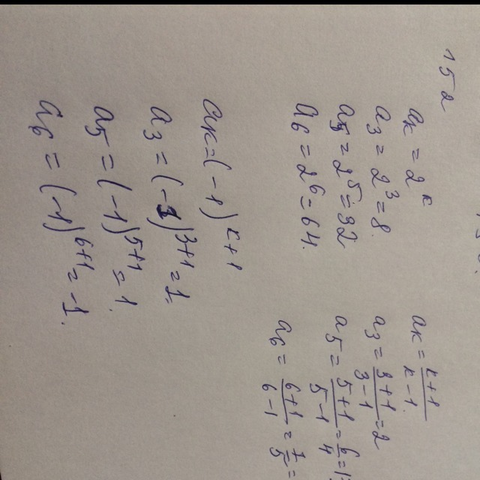 152
aₖ = 2ᵏ
a₃ = 2³ = 8.
a₅ = 2⁵ = 32
a₆ = 2⁶ = 64.
aₖ = (-1)ᵏ⁺¹
a₃ = (-1)³⁺¹ = 1.
a₅ = (-1)⁵⁺¹ = 1.
a₆ = (-1)⁶⁺¹ = -1.
aₖ = (k+1)/(k-1)
a₃ = (3+1)/(3-1) = 2
a₅ = (5+1)/(5-1) = 6/4 = 1
a₆ = (6+1)/(6-1) = 7/5 =